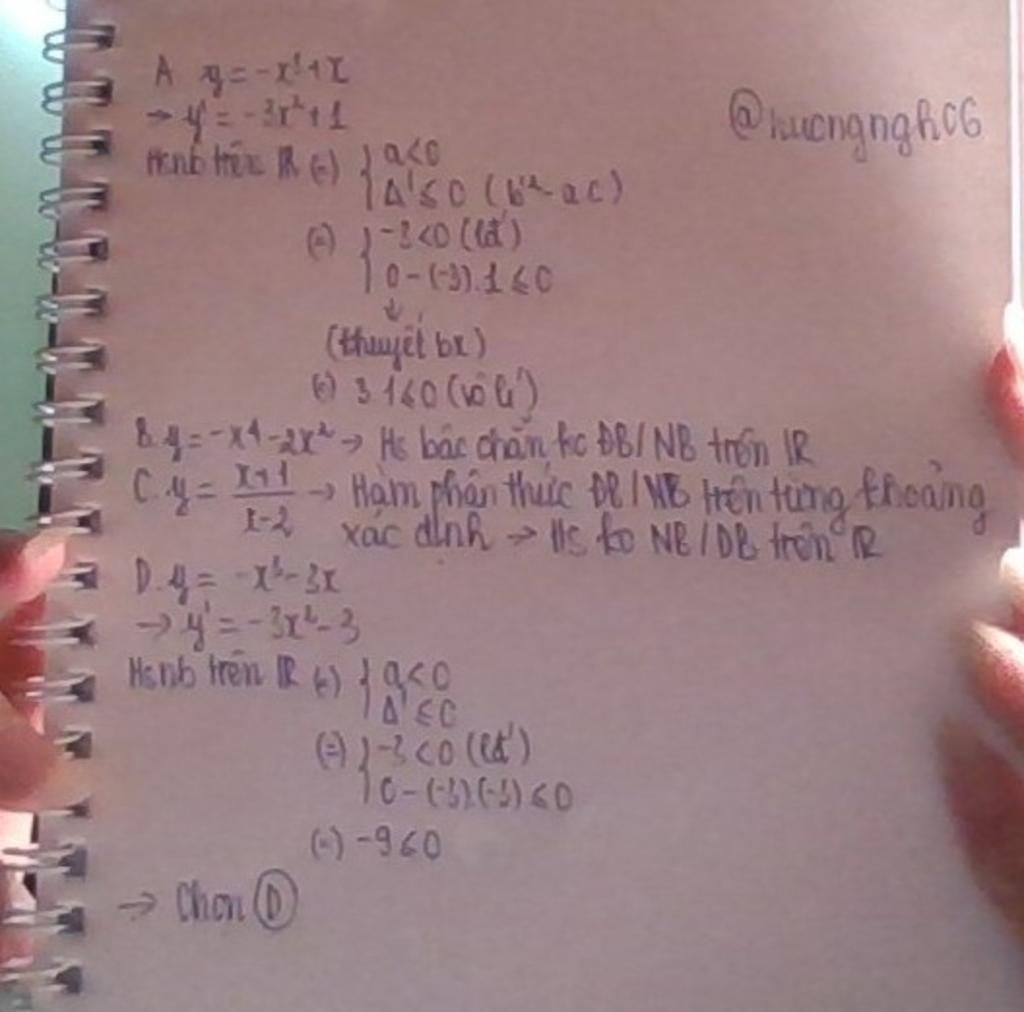 A y = -x³ + x
@huongngh06
→ y' = -3x² + 1
Hsnb trên R (=) { a < 0
Δ' ≤ 0 (b'² - ac)
(=) { -3 < 0 (lđ)
0 - (-3).1 ≤ 0
↓
(thuyết bx)
(=) 3 ≤ 0 (vô lí)
B. y = -x⁴ - 2x² → Hs bậc chẵn ko ĐB/NB trên R
C. y = x+1 / x-2 → Hàm phân thức ĐB/NB trên từng khoảng
xác định → Hs ko NB/ĐB trên R
D. y = -x³ - 3x
→ y' = -3x² - 3
Hsnb trên R (=) { a < 0
Δ' ≤ 0
(=) { -3 < 0 (lđ)
0 - (-3).(-3) ≤ 0
(=) -9 ≤ 0
→ Chọn D